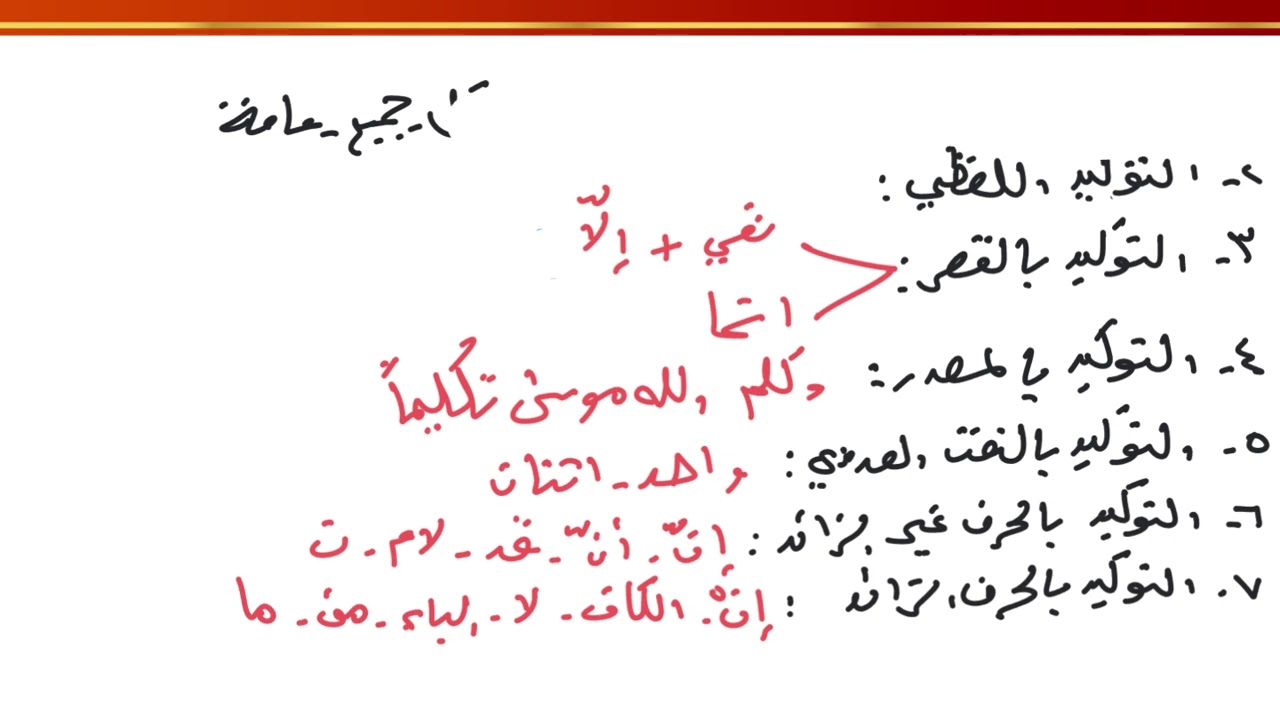 جميع - عامة
٢- التوكيد اللفظي :
٣- التوكيد بالقصر :
نفي + إلّا
انما
٤- التوكيد بالمصدر : وكلم الله موسى تكليماً
٥- التوكيد بالنعت العددي : واحد - اثنان
٦- التوكيد بالحرف غير الزائد : إنّ - أنّ - قد - لام - ن
٧- التوكيد بالحرف الزائد : إنْ - الكاف - لا - الباء - من - ما